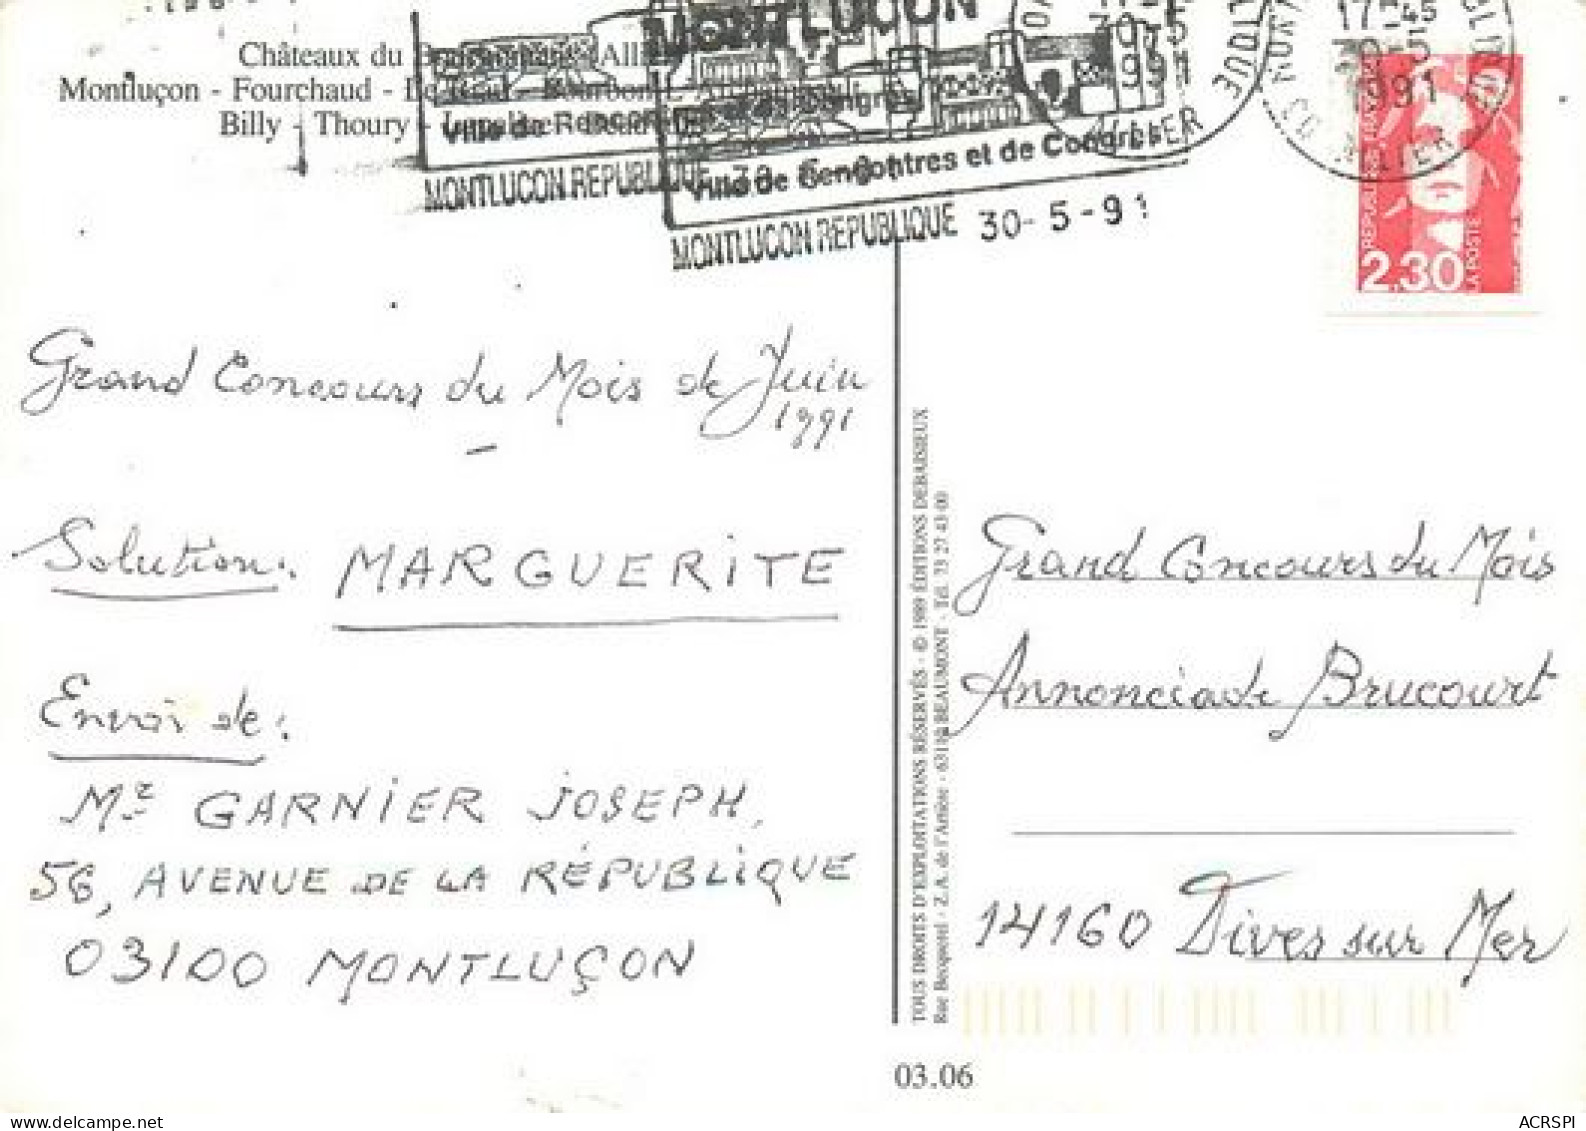 MONTLUÇON
Châteaux du
Montluçon - Fourchaud -
Billy - Thoury -
Ville de Rencontres et de Congrès
MONTLUCON REPUBLIQUE
Ville de Rencontres et de Congrès
MONTLUCON REPUBLIQUE 30-5-91
17-45
30-5
1991
ALLIER
2,30
LA POSTE
Grand Concours du Mois de Juin
1991
Solution: MARGUERITE
Envoi de:
Mr GARNIER JOSEPH,
56, AVENUE DE LA RÉPUBLIQUE
03100 MONTLUÇON
TOUS DROITS D'EXPLOITATIONS RÉSERVÉS - © 1989 ÉDITIONS DEBAISIEUX
Rue Becquerel - Z.A. de l'Artière - 63110 BEAUMONT - Tél. 73 27 43 00
Grand Concours du Mois
Annonciade Brucourt
14160 Dives sur Mer
03.06
ACRSPI